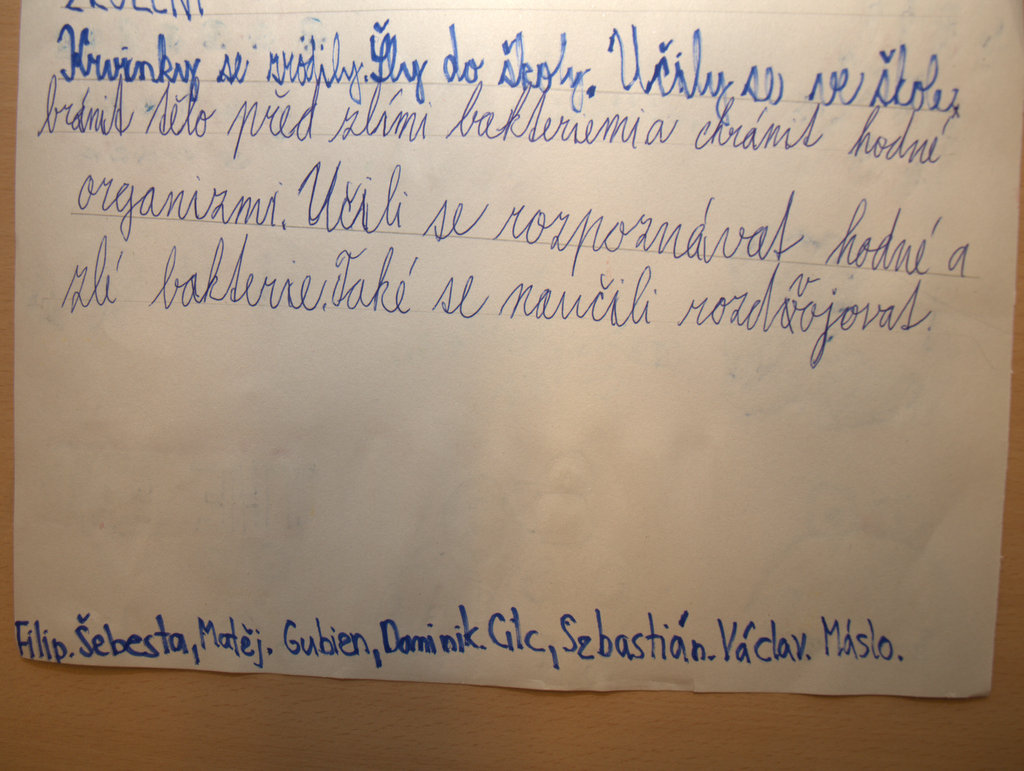 ZROZENÍ
Krvinky se zrodily. Šly do školy. Učily se ve škole
bránit tělo před zlími bakteriemi a chránit hodné
organizmi. Učili se rozpoznávat hodné a
zlé bakterie. Také se naučili rozdvojovat.
Filip. Šebesta, Matěj. Gubien, Daminik. Cilc, Szbastián. Václav. Máslo.